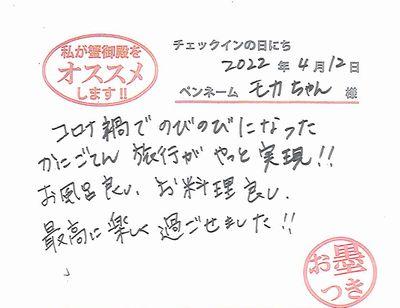 私が蟹御殿を
オススメ
します!!
チェックインの日にち
2022年4月12日
ペンネーム モカちゃん 様
コロナ禍でのびのびになった
かにごてん 旅行がやっと実現!!
お風呂良し、お料理良し、
最高に楽しく過ごせました!!
お墨
つき